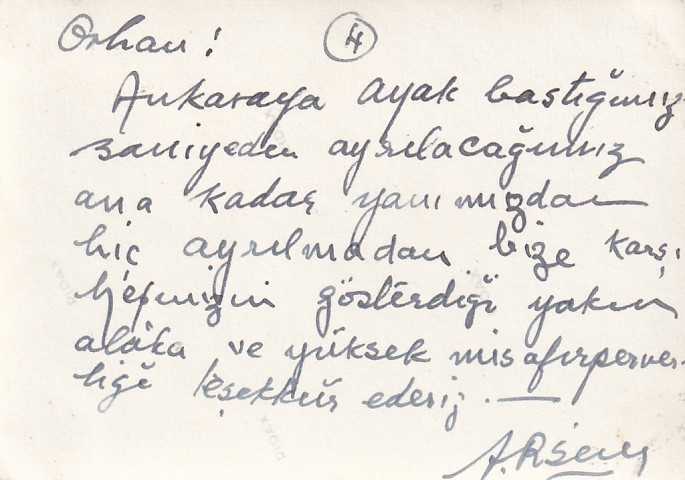 Orhan! 4
Ankaraya ayak bastığımız
saniyeden ayrılacağımız
ana kadar yanımızdan
hiç ayrılmadan bize karşı
hepinizin gösterdiği yakın
alâka ve yüksek misafirperver-
liğe teşekkür ederiz. —